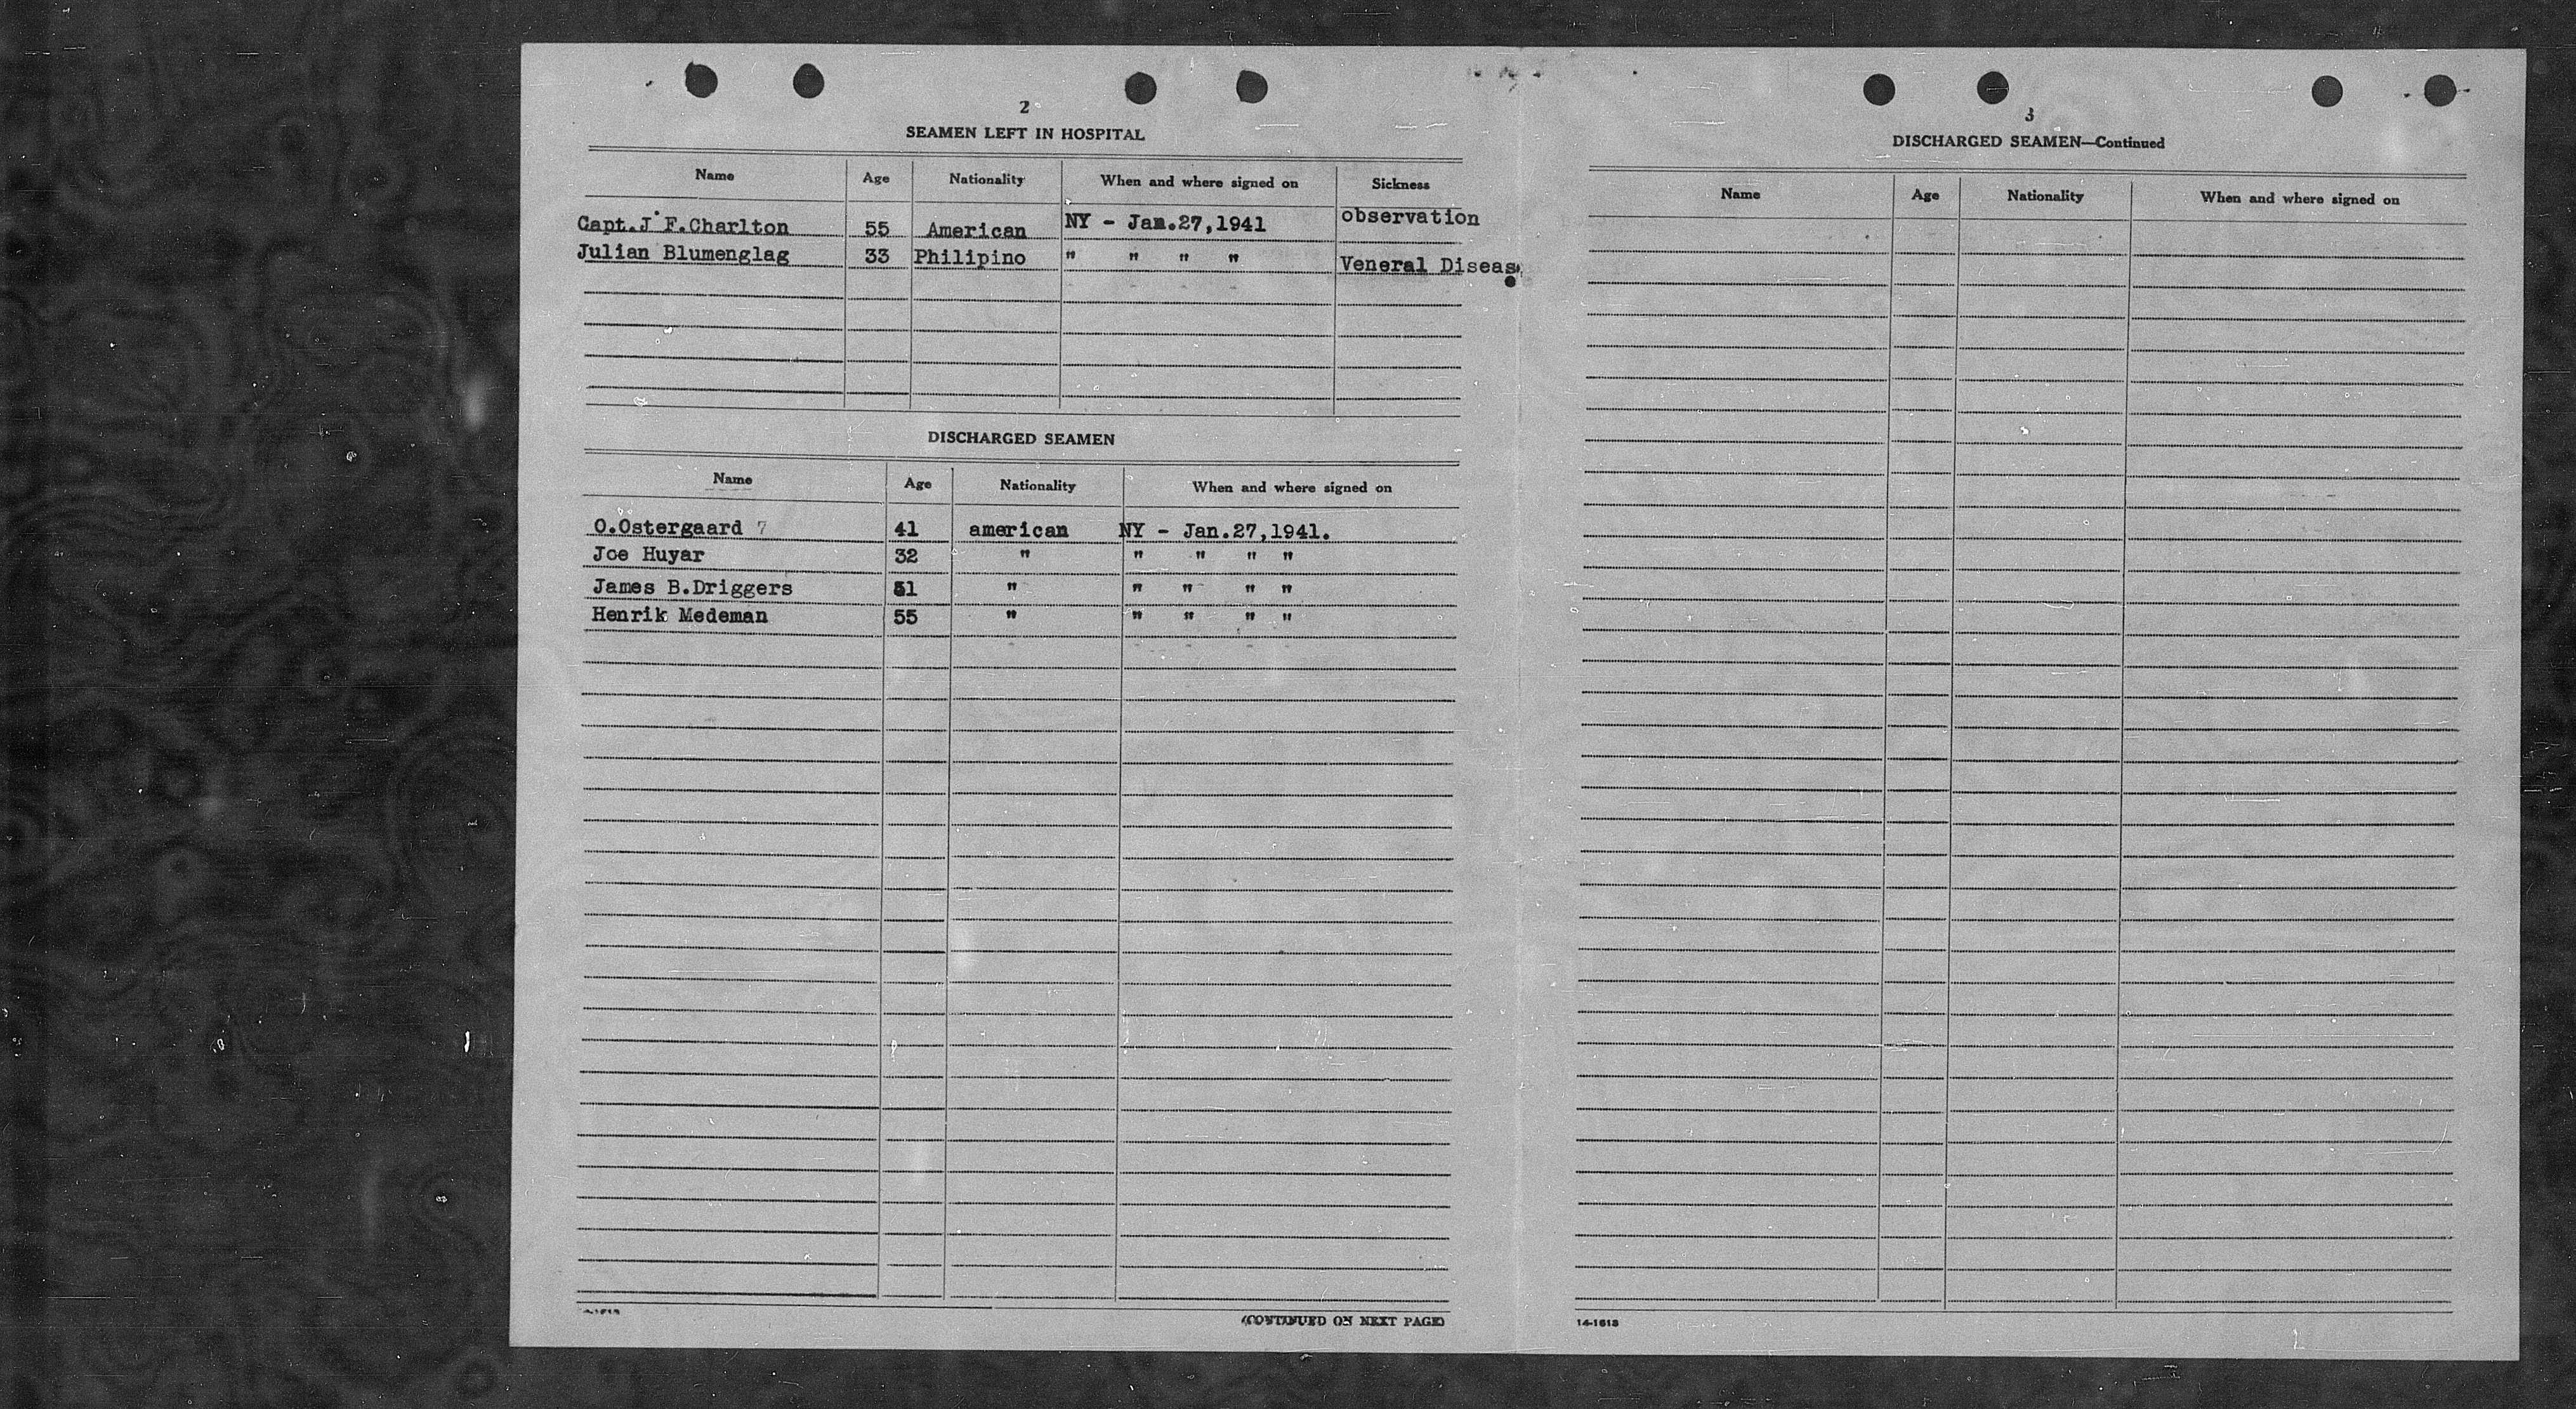 2
SEAMEN LEFT IN HOSPITAL
Name Age Nationality When and where signed on Sickness
Capt.J F.Charlton 55 American NY - Jan.27,1941 observation
Julian Blumenglag 33 Philipino " " " " Veneral Diseas
DISCHARGED SEAMEN
Name Age Nationality When and where signed on
O.Ostergaard 7 41 american NY - Jan.27,1941.
Joe Huyar 32 " " " " "
James B.Driggers 51 " " " " "
Henrik Medeman 55 " " " " "
(CONTINUED ON NEXT PAGE)
3
DISCHARGED SEAMEN—Continued
Name Age Nationality When and where signed on
14-1613